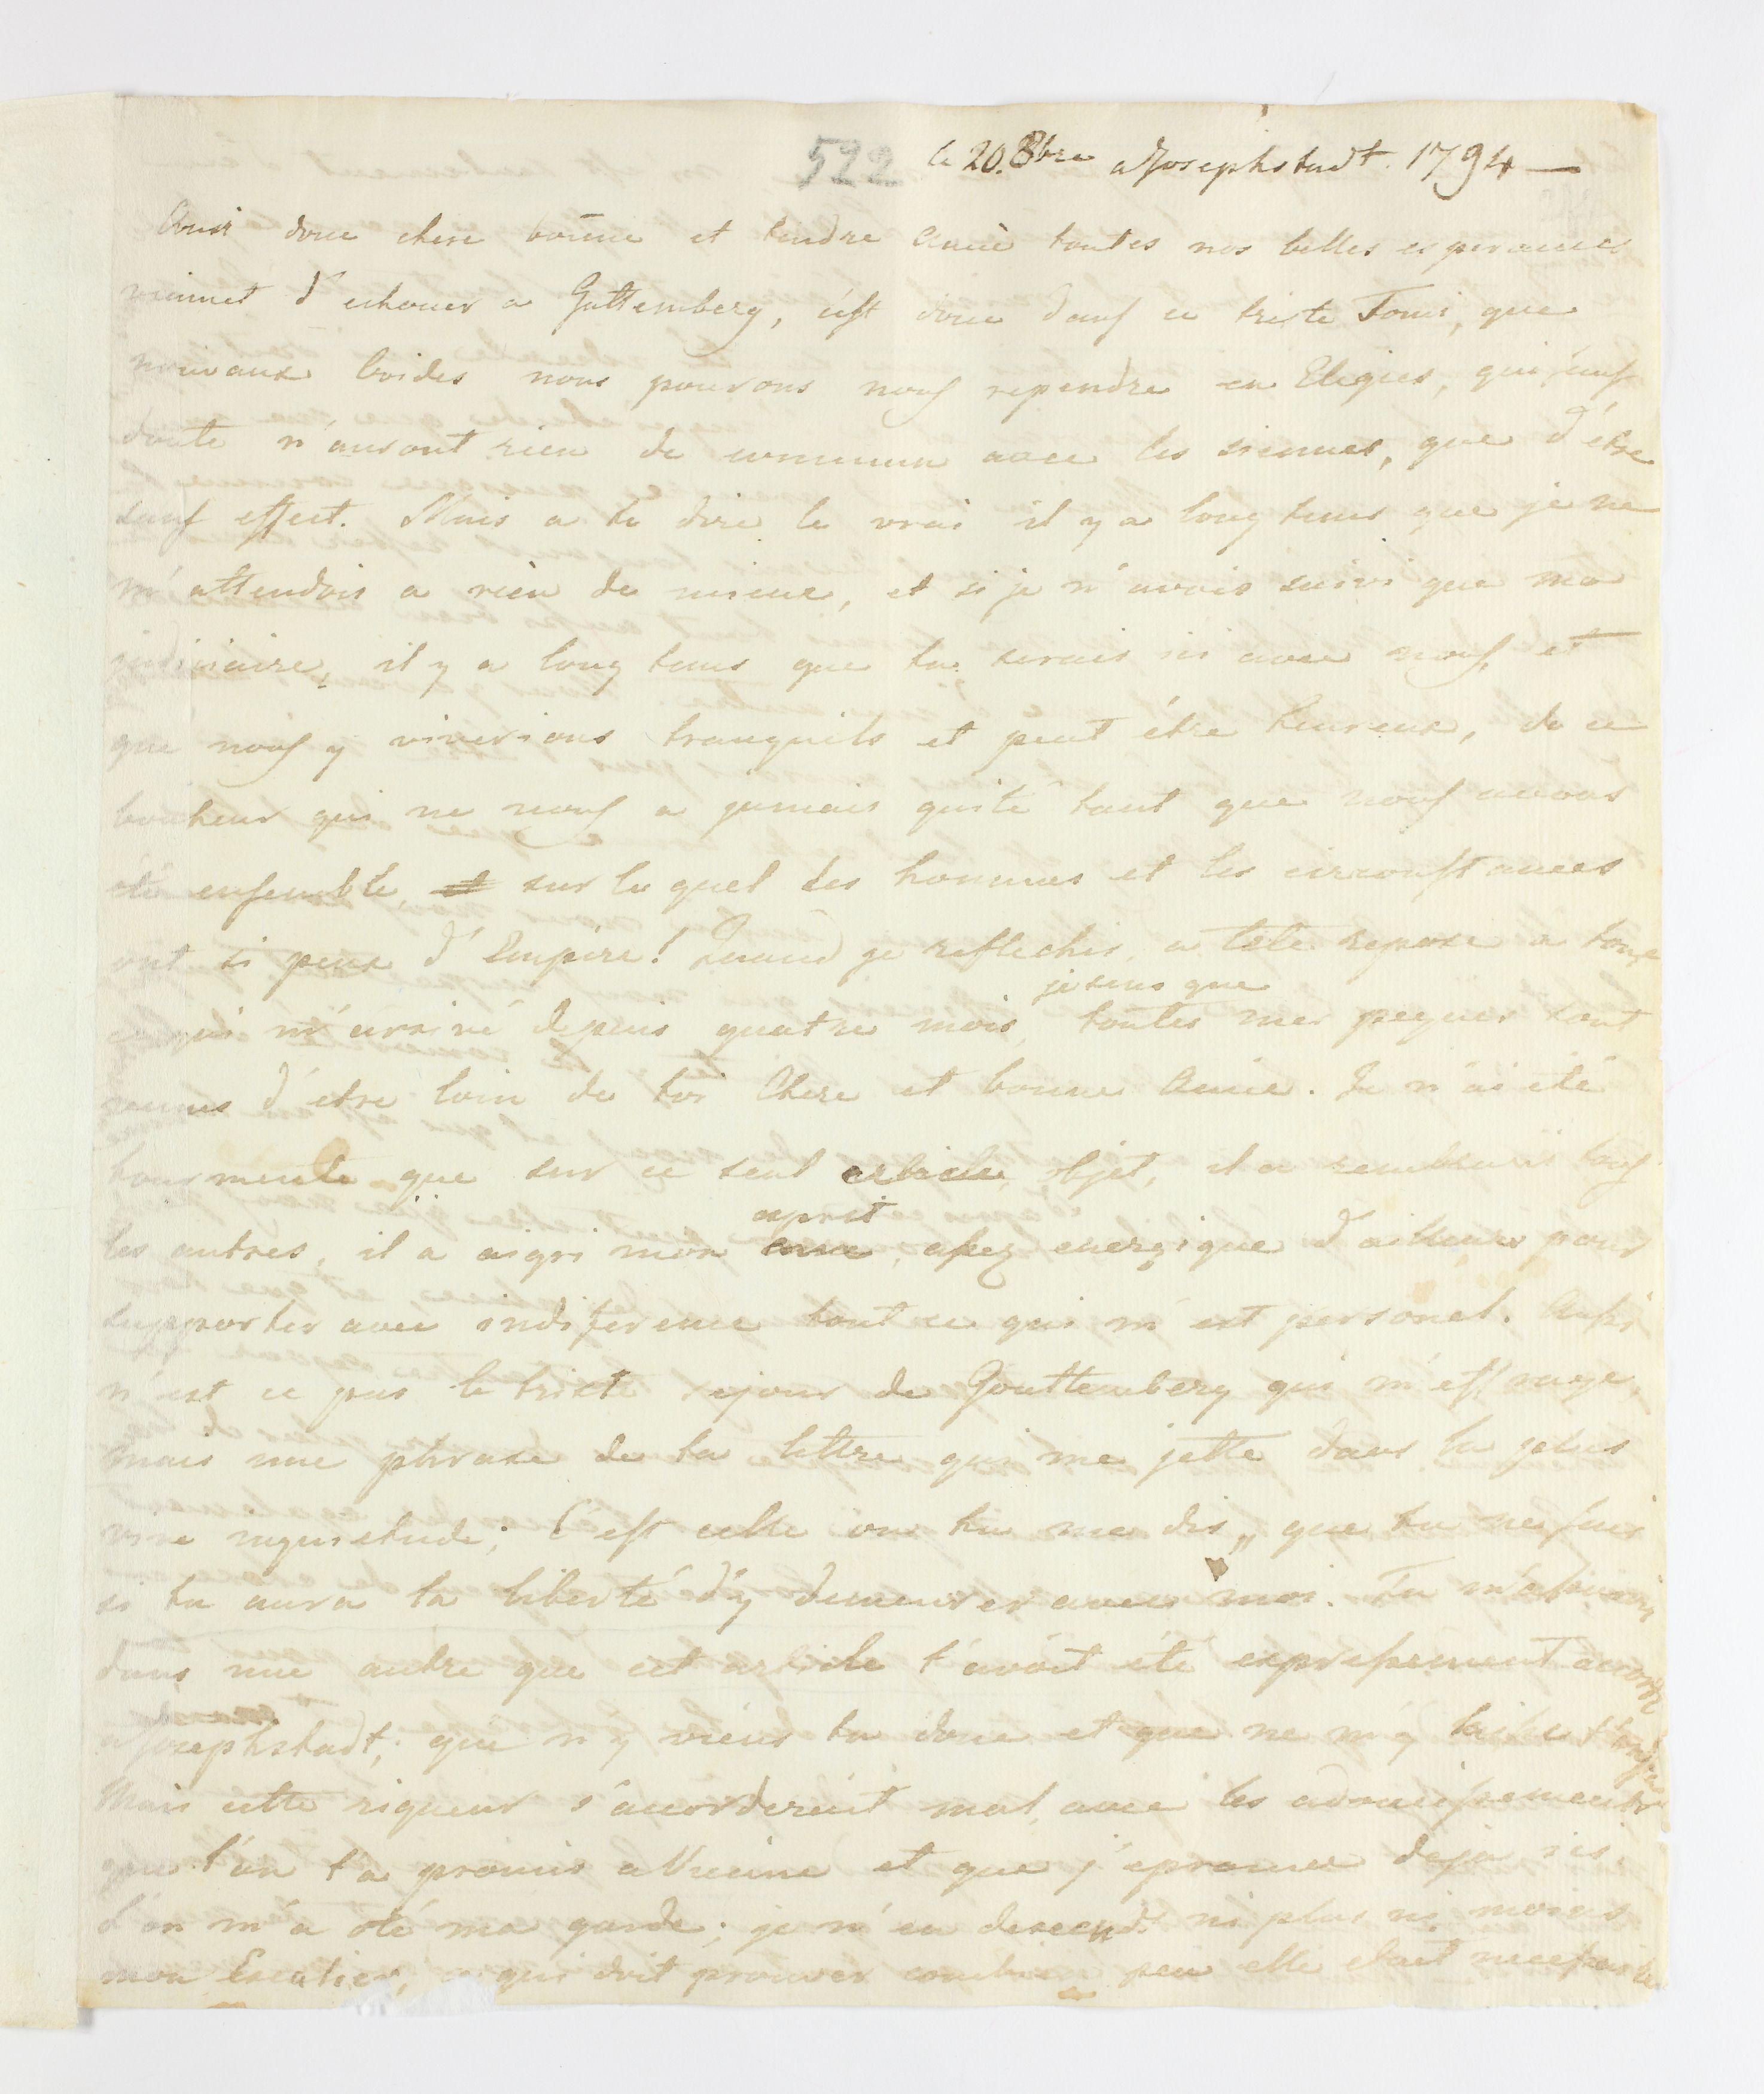 522 le 20. 8bre a Josephstadt. 1794 —
Ainsi donc chere bonne et tendre amie toutes nos belles esperances
viennet d'echouer a Guttemberg, c'est donc dans ce triste Tomi, que
nouvaux Ovides nous pouvons nous rependre en Elegies, qui sans
doute n'auront rien de commun avec les siennes, que d'être
sans effect. Mais a te dire le vrai il y a long tems que je ne
m'attendois a rien de mieux, et si je n'avois suivi que ma
judiciaire, il y a long tems que tu serais ici avec nous, et
que nous y viverions tranquils et peut être heureux, de ce
bonheur qui ne nous a jamais quité tant que nous avons
été ensemble, et sur le quel les hommes et les circonstances
ont si peux d'Empire! Quand je reflechis, a tete reposé a tout
je sens que
ce qui m'earivé depuis quatre mois, toutes mes peines sont
venues d'etre loin de toi Chere et bonne Amie. Je n'ai été
tourmenté que sur ce seul article, objet, il a rembruni tous
esprit
les autres, il a aigri mon ame, assez energique d'ailleurs pour
supporter avec indiference tout ce qui m'est personel. Aussi
n'est ce pas le triste sejour de Gouttemberg qui m'effraye,
mais une phrase de ta lettre qui me jette dans la plus
vive inquietude; C'est celle ou tu me dis „ que tu ne sais
si tu aura la liberté d'y demeurer avec moi. Tu m'a
dans une autre que cet article t'avoit été expressement
a Josephstadt; que n'y viens tu donc et que ne m'y
Mais cette rigueur s'accorderait mal, avec les adoucissements
que l'on t'a promis a Vienne et que j'eprouve deja ici.
L'on m'a oté ma garde; je n'en descend ni plus ni moins
mon Escalier, ce qui doit prouver combien peu elle etait necessaire